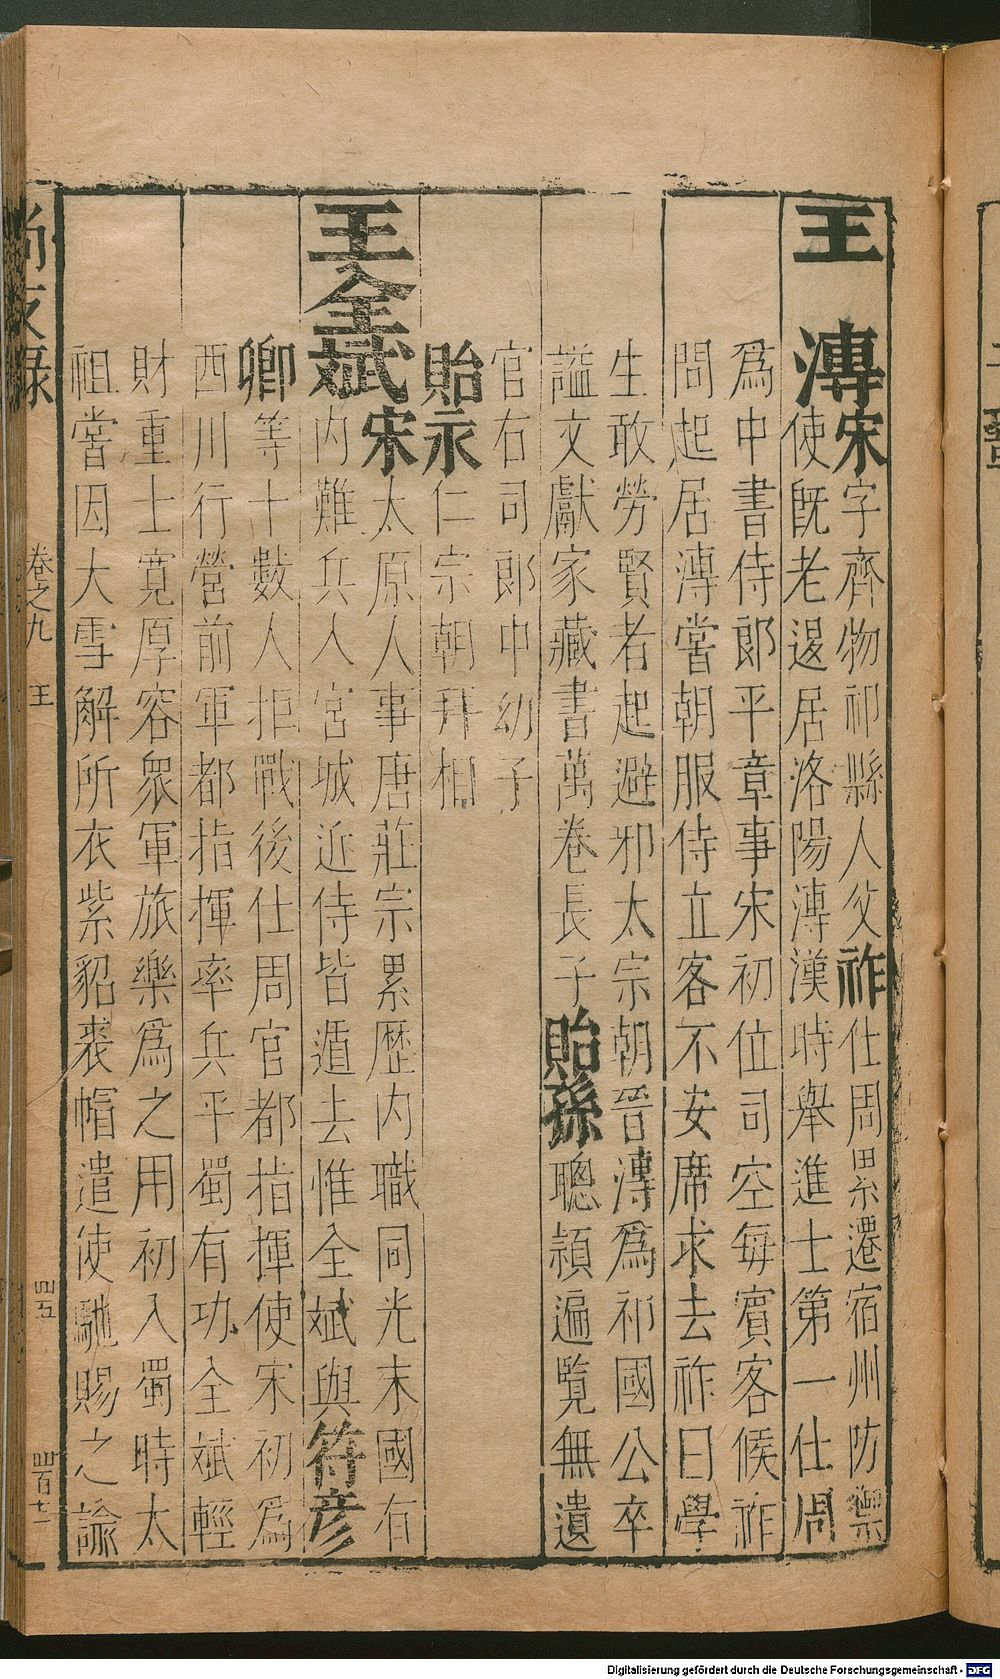 王　溥宋字齊物祁縣人父祚仕周累遷宿州防禦
使既老退居洛陽溥漢時舉進士第一仕周
爲中書侍郎平章事宋初位司空每賓客候祚
問起居溥嘗朝服侍立客不安席求去祚曰學
生敢勞賢者起避邪太宗朝晉溥爲祁國公卒
謚文獻家藏書萬卷長子貽孫聰穎遍覽無遺
官右司郎中幼子
貽永仁宗朝拜相
王全斌宋太原人事唐莊宗累歷內職同光末國有
內難兵入宮城近侍皆遁去惟全斌與符彥
卿等十數人拒戰後仕周官都指揮使宋初爲
西川行營前軍都指揮率兵平蜀有功全斌輕
財重士寬厚容衆軍旅樂爲之用初入蜀時太
祖嘗因大雪解所衣紫貂裘帽遣使馳賜之諭
尚友錄　卷之九　王　四五　四百十二
Digitalisierung gefördert durch die Deutsche Forschungsgemeinschaft - DFG